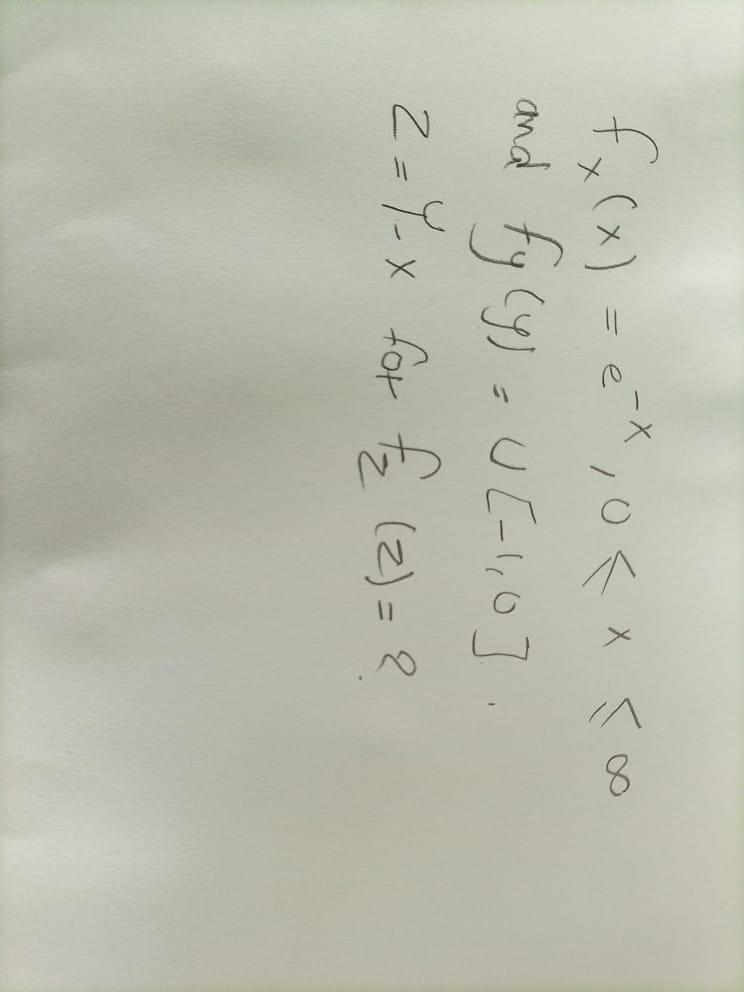 fx(x) = e^-x, 0 ≤ x ≤ ∞
and fy(y) = U[-1,0].
Z = Y-X for fz(z) = ?